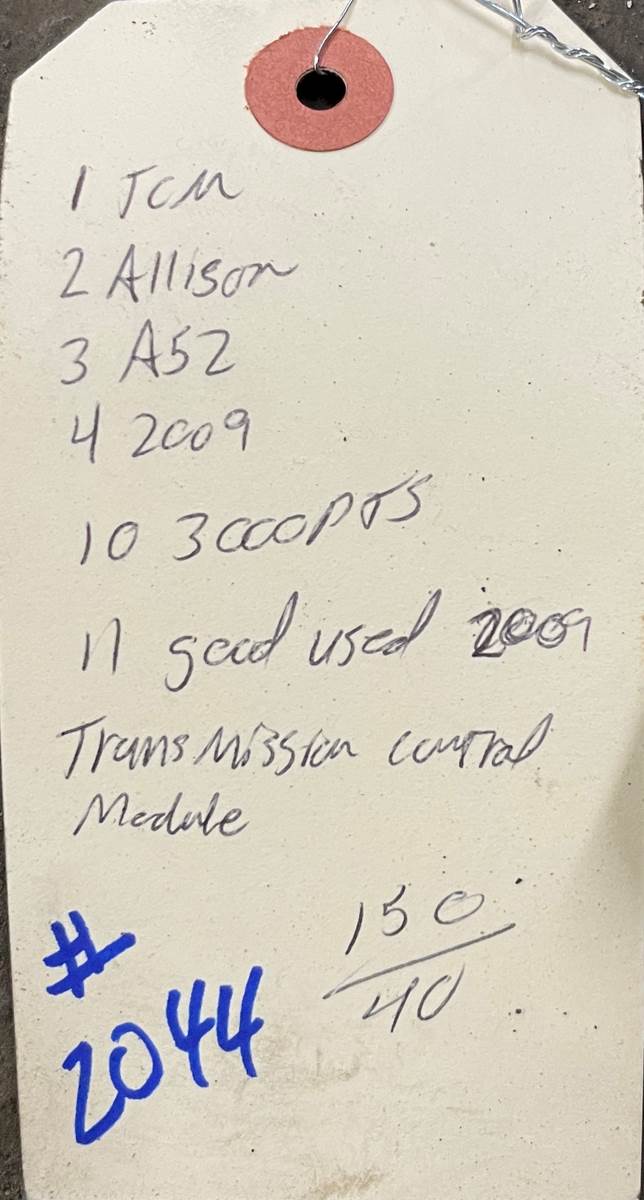 1 TCM
2 Allison
3 A52
4 2009
10 3000PTS
11 good used 2009
TransMission control
Module
150
40
#
2044